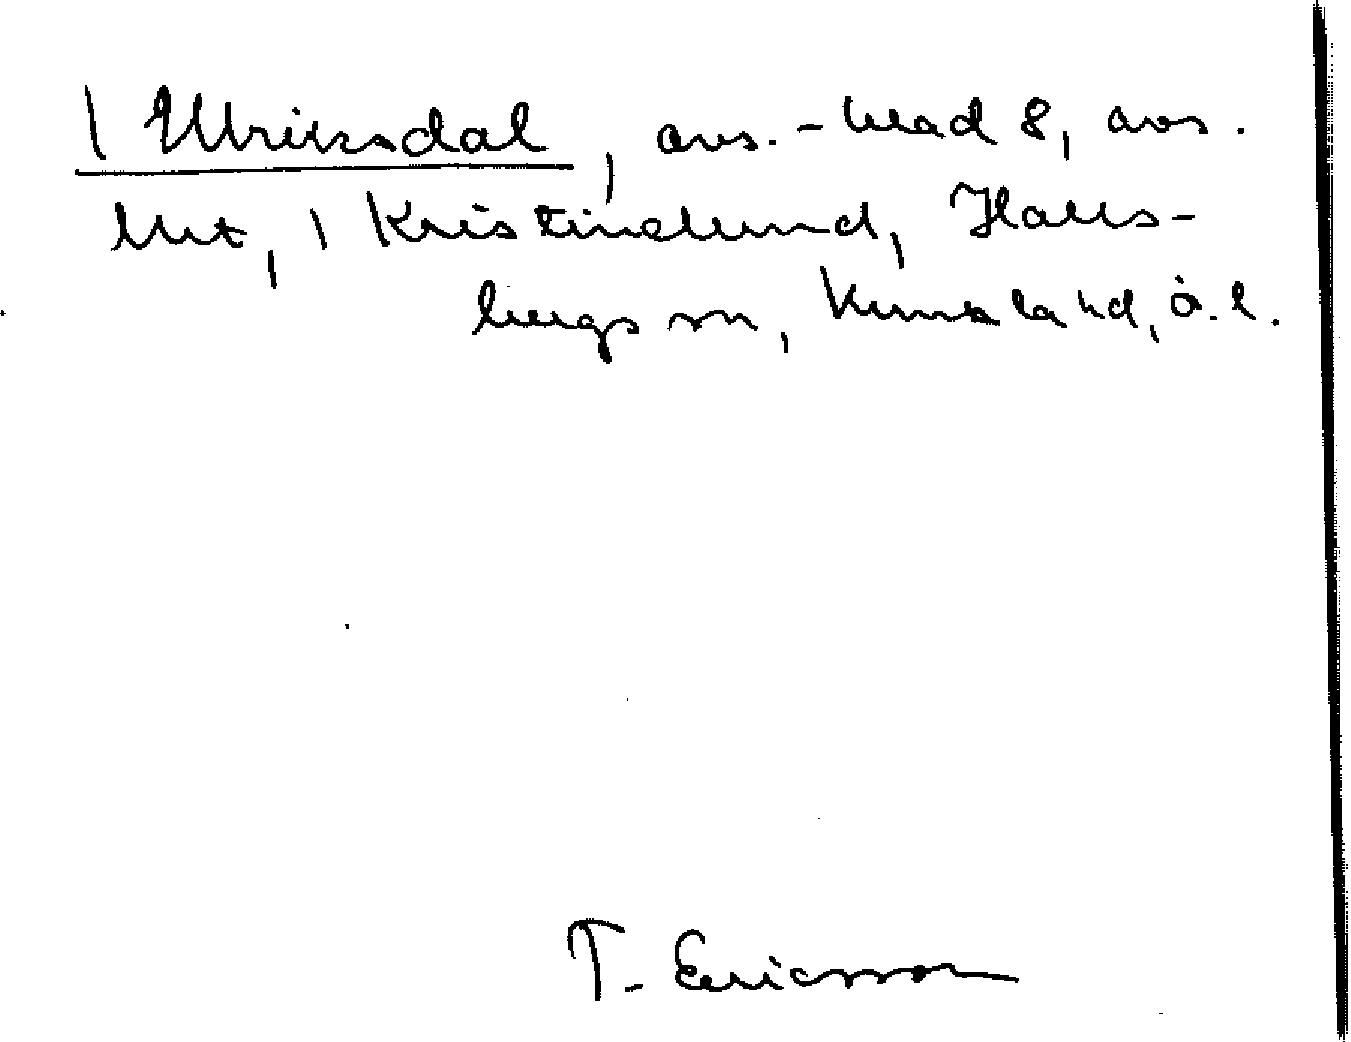 \ Ulriksdal, avs. - blad 8, avs.
litt, \ Kristinelund, Halls-
bergs sn, Kumla hd, ö.l.
T. Ericsson